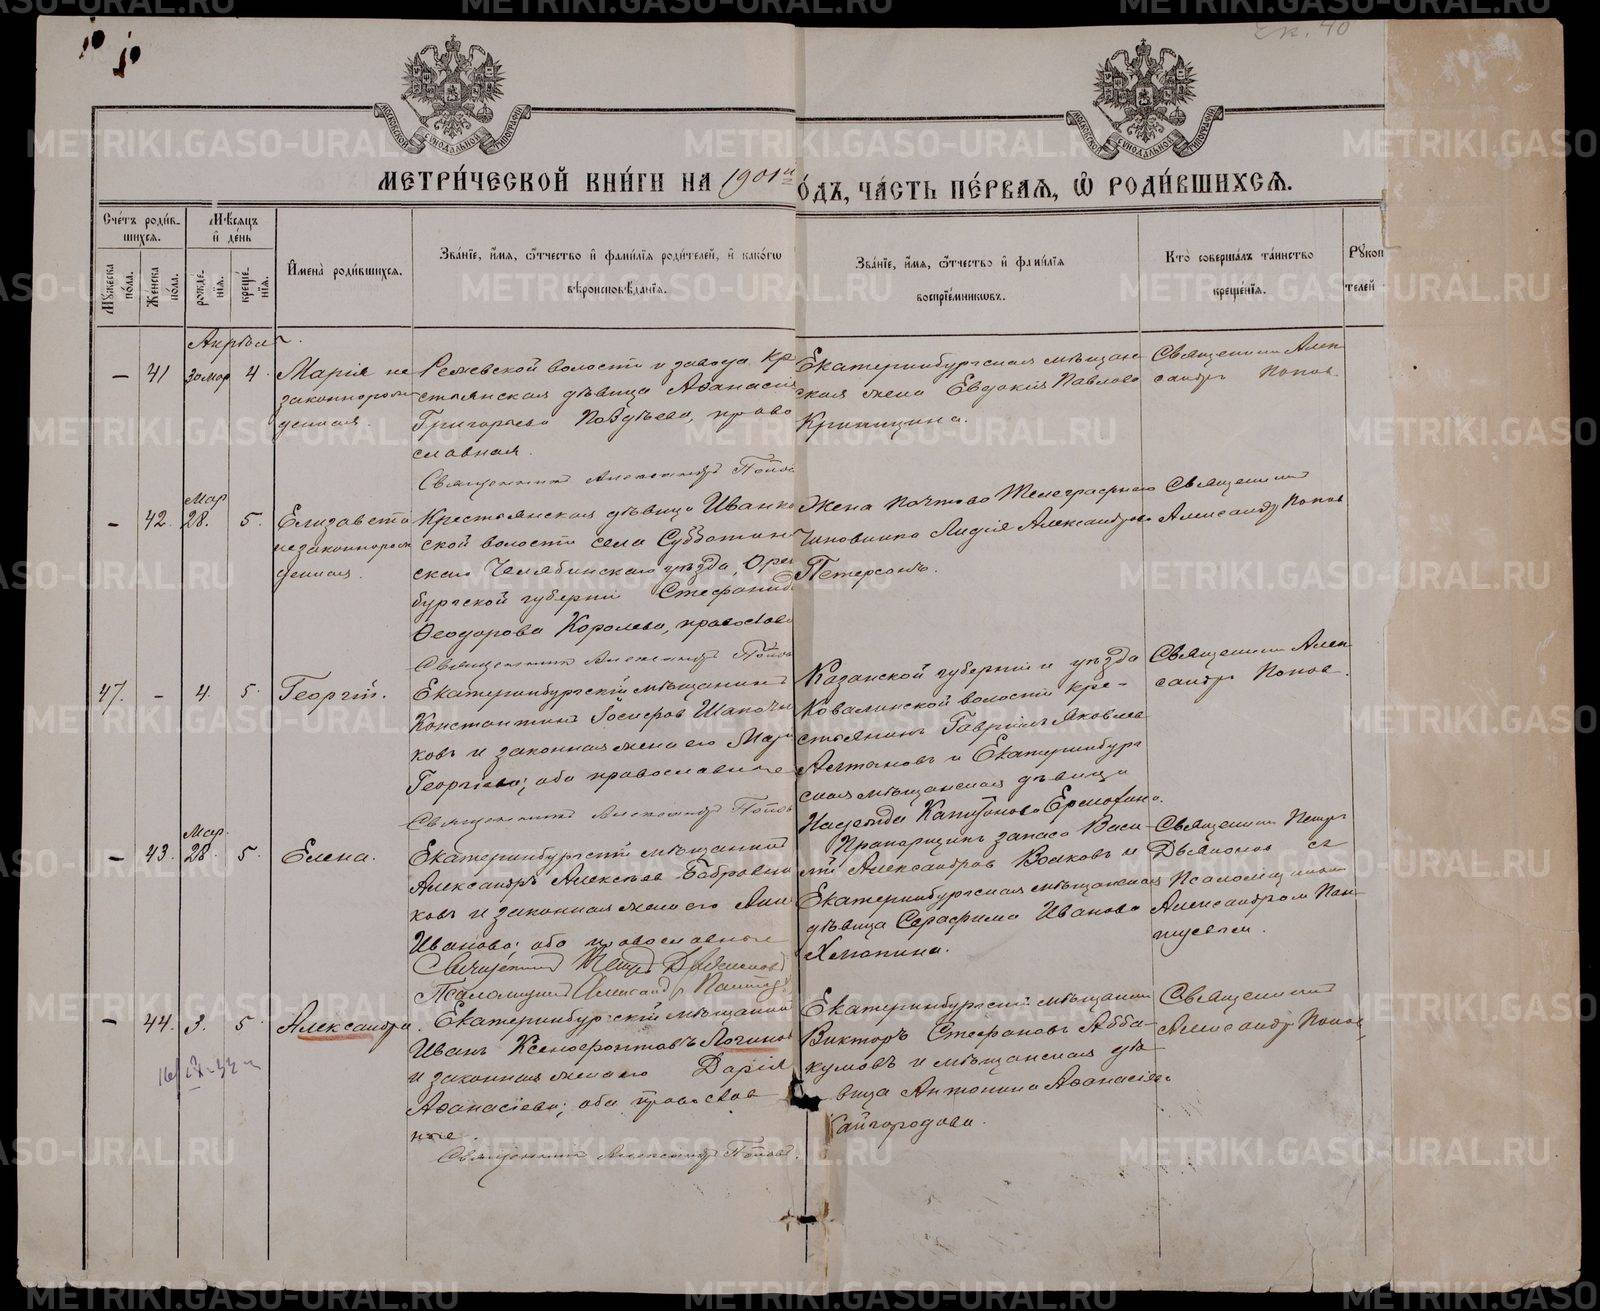 чк. 40
МЕТРИ́ЧЕСКОЙ КНИ́ГИ НА 1901й
ОДЪ, ЧА́СТЬ ПЕ́РВАЯ, Ѽ РОДИ́ВШИХСЯ.
Сче́тъ роди́в-
шихся.
Мѣсяцъ
и де́нь
Мꙋжеска
по́ла.
Же́нска
по́ла.
рожде́-
нїя.
креще́-
нїя.
Имена̀ роди́вшихся.
Зва́нїе, и́мя, ѻ҆́тчество и фами́лїя роди́телей, и како́гѡ
вѣроисповѣ́данїя.
Зва́нїе, и́мя, ѻ҆́тчество и фами́лїя
воспрїе́мниковъ.
Кто̀ соверша́лъ та́инство
креще́нїя.
Рꙋкоп
телей
Апрѣль
– 41 30 мар 4.
Марія не
законнорож
денная.
Режевской волости и завода кр
стьянская дѣвица Афанасія
Григорьева Повдѣева, право
славная.
Священникъ Александръ Попов
Екатеринбургская мѣщан
ская жена Евдокія Павлова
Крипицина.
Священникъ Алек
сандръ Попов.
– 42. Мар 28. 5.
Елизавета
незаконнорож
денная.
Крестьянская дѣвица Иванко
ской волости села Субботин
скаго Челябинскаго уѣзда, Орен
бургской губерніи Стефанида
Ѳеодорова Королева, православ
Священникъ Александръ Попов
Жена Почтово Телеграфнаго
чиновника Лидія Александрова
Петерсонъ.
Священникъ
Александръ Попов
47. – 4. 5.
Георгій.
Екатеринбургскій мѣщанинъ
Константинъ Іосифов Шапочн
ковъ и законная жена его Марі
Георгіева; оба православные
Священникъ Александръ Попов
Казанской губерніи и уѣзда
Ковалинской волости кре-
стьянинъ Гавріилъ Яковлев
Алтановъ и Екатеринбург
ская мѣщанская дѣвица
Надежда Капитонова Ермохина.
Священникъ Алек
сандръ Попов.
– 43. Мар. 28. 5.
Елена.
Екатеринбургскій мѣщанинъ
Александръ Алексѣев Бобровни
ковъ и законная жена его Анна
Иванова; оба православные
Священникъ Петръ Дьяконов
Псаломщикъ Александръ Пантуев
Прапорщикъ запаса Васи
лій Александров Волковъ и
Екатеринбургская мѣщанская
дѣвица Серафима Иванова
Хлопина.
Священникъ Петръ
Дьяконов съ
Псаломщикомъ
Александром Пан-
туевым.
– 44. 3. 5.
Александра.
Екатеринбургскій мѣщанинъ
Иванъ Ксенофонтовъ Логинов
и законная жена его Дарія
Афанасіева; оба православ
ные.
Священникъ Александръ Попов.
Екатеринбургскій мѣщанинъ
Викторъ Стефановъ Абба-
кумовъ и мѣщанская дѣ-
вица Антонина Афанасіева
Кайгородова.
Священникъ
Александръ Попов